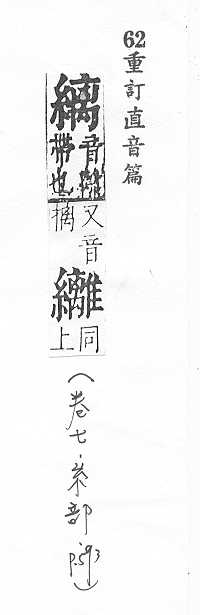 62重訂直音篇
縭
音離
帶也
又音
摛
同
上
(卷七·糸部 p.593)